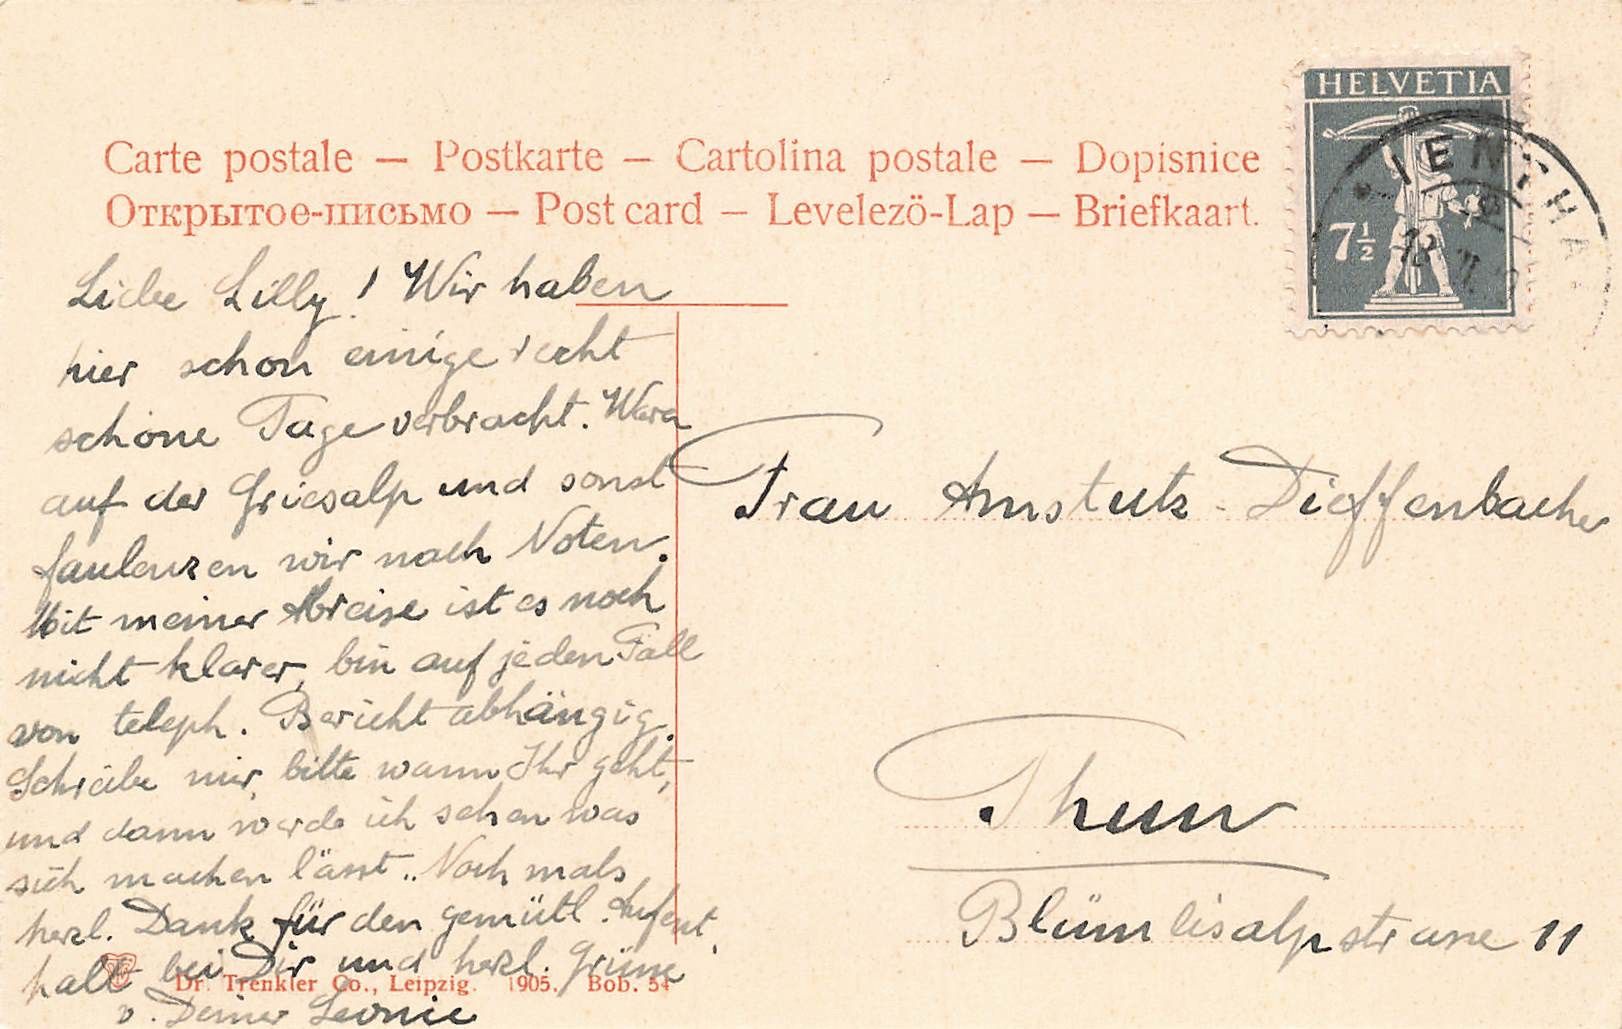 Carte postale — Postkarte — Cartolina postale — Dopisnice
Открытое-письмо — Post card — Levelezö-Lap — Briefkaart.
HELVETIA
7½
Liebe Lilly! Wir haben
hier schon einige recht
schöne Tage verbracht. Waren
auf der Griesalp und sonst
faulenzen wir nach Noten.
Mit meiner Abreise ist es noch
nicht klarer, bin auf jeden Fall
von teleph. Bericht abhängig.
Schreibe mir, bitte wann Ihr geht,
und dann werde ich sehen was
sich machen lässt. Noch mals
herzl. Dank für den gemütl. Aufent
halt bei Dir und herzl. Grüsse
v. Deiner Leonie
Frau Amstutz-Dieffenbacher
Thun
Blümlisalpstrasse 11
Dr. Trenkler Co., Leipzig. 1905. Bob. 54